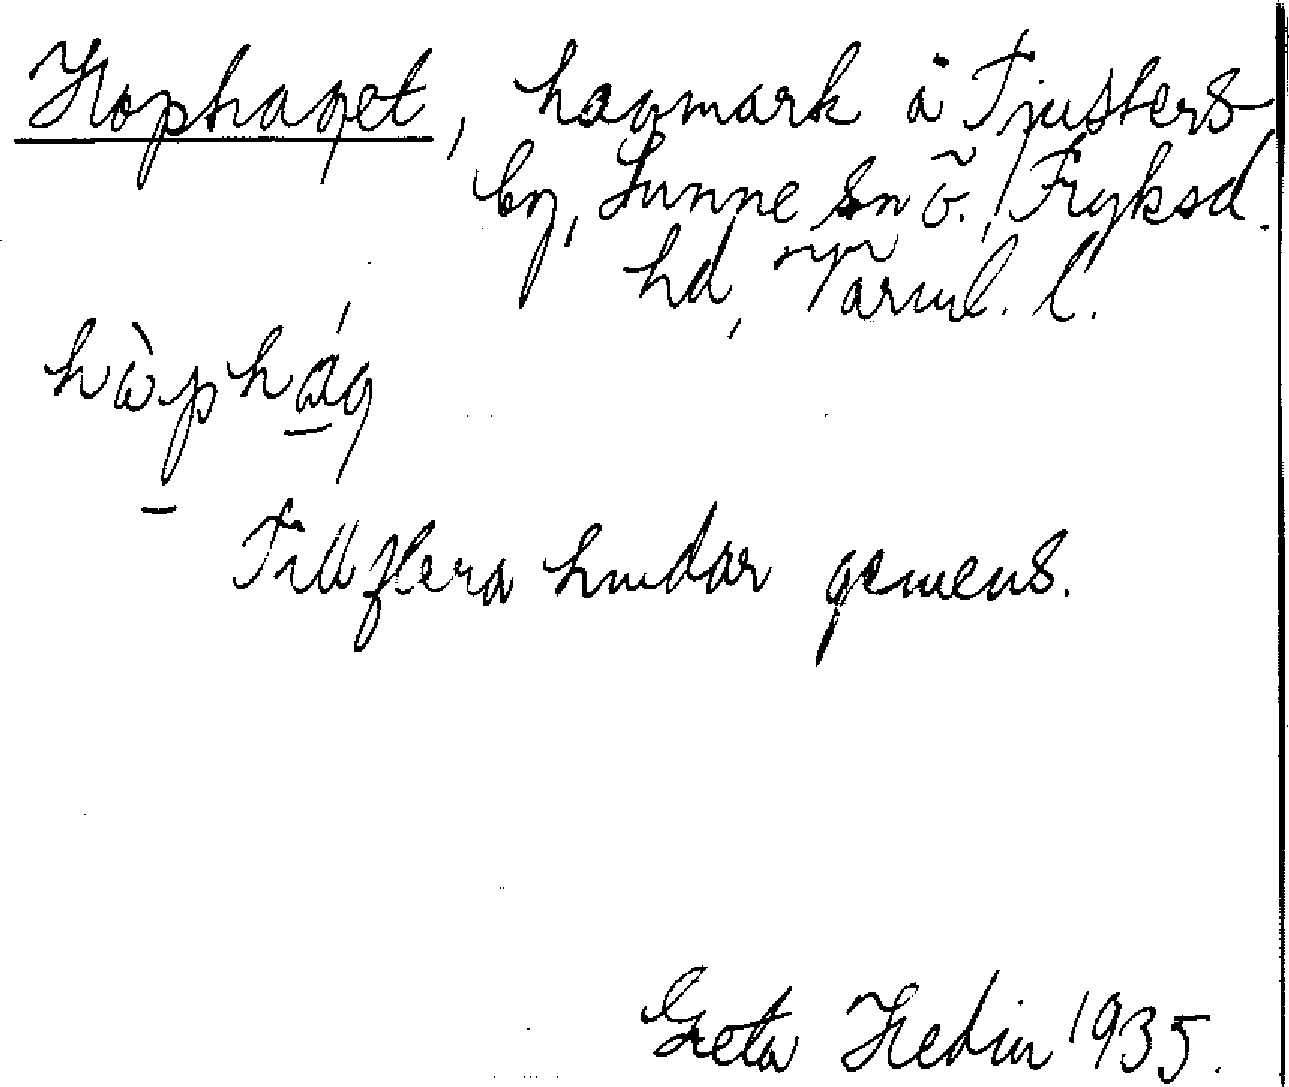 Hophaget, hagmark å Tjusters-
by, Sunne sn ö., Fryksd.
hd, Värml. l.
hòphág
Till flera hmdar gemens.
Greta Hedin 1935.